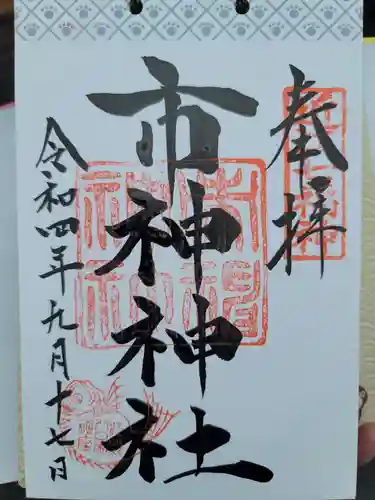 奉拝
市神神社
令和四年九月十七日